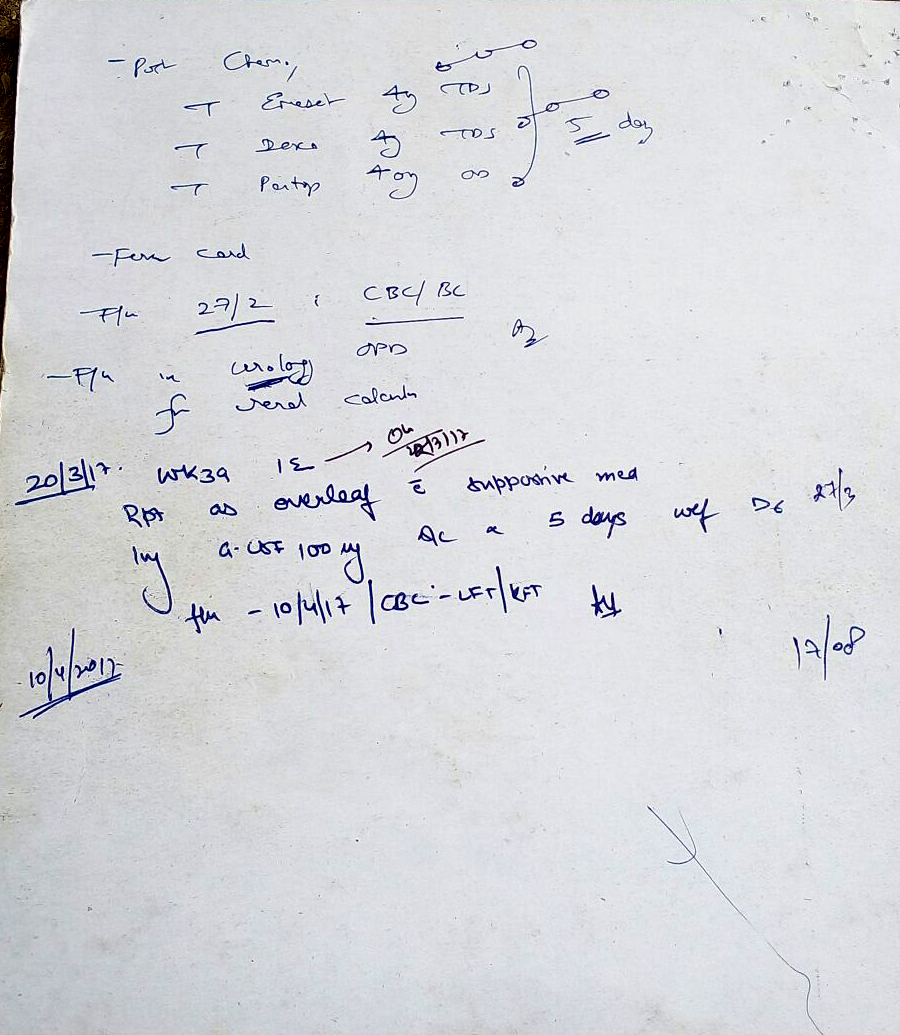 - Post Chemo,
T Emeset 4mg TDS
T Dexa 4mg TDS 5 day
T Pantop 40mg OD
- Fever card
- F/u 27/2 : CBC/ BC
- F/u in urology OPD
for renal calculi
20/3/17. WK3a
Rpt as overleaf c̄ supportive med
Inj G-CSF 100 SC x 5 days wef D6 27/3
f/u - 10/4/17 | CBC - LFT/KFT
17/08
10/4/2017